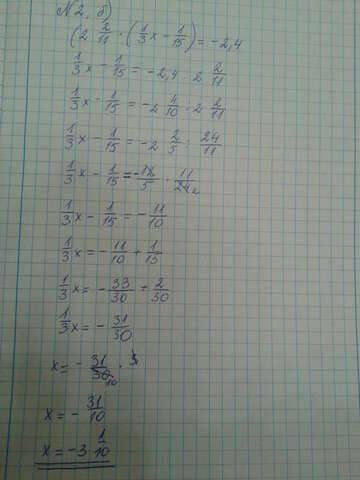 N2, б)
(2 2/11 · (1/3 x - 1/15) = -2,4
1/3 x - 1/15 = -2,4 : 2 2/11
1/3 x - 1/15 = -2 4/10 : 2 2/11
1/3 x - 1/15 = -2 2/5 : 24/11
1/3 x - 1/15 = -12/5 · 11/24
1/3 x - 1/15 = -11/10
1/3 x = -11/10 + 1/15
1/3 x = -33/30 + 2/30
1/3 x = -31/30
x = -31/30 10 · 3
x = -31/10
x = -3 1/10